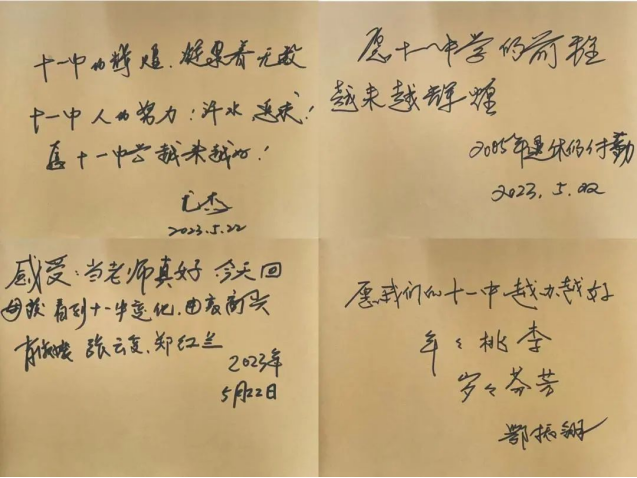 十一中的辉煌,凝聚着无数
十一中人的努力!汗水
愿十一中学越来越好!
2023.5.22
愿十一中学的前程
越来越辉煌
2005年退休的付勤
2023.5.22
感受:当老师真好 今天回
母校看到十一中变化,由衷高兴
张云复.郑红兰
2023年
5月22日
愿我们的十一中越办越好
年々桃李
岁々芬芳
鄂振翔